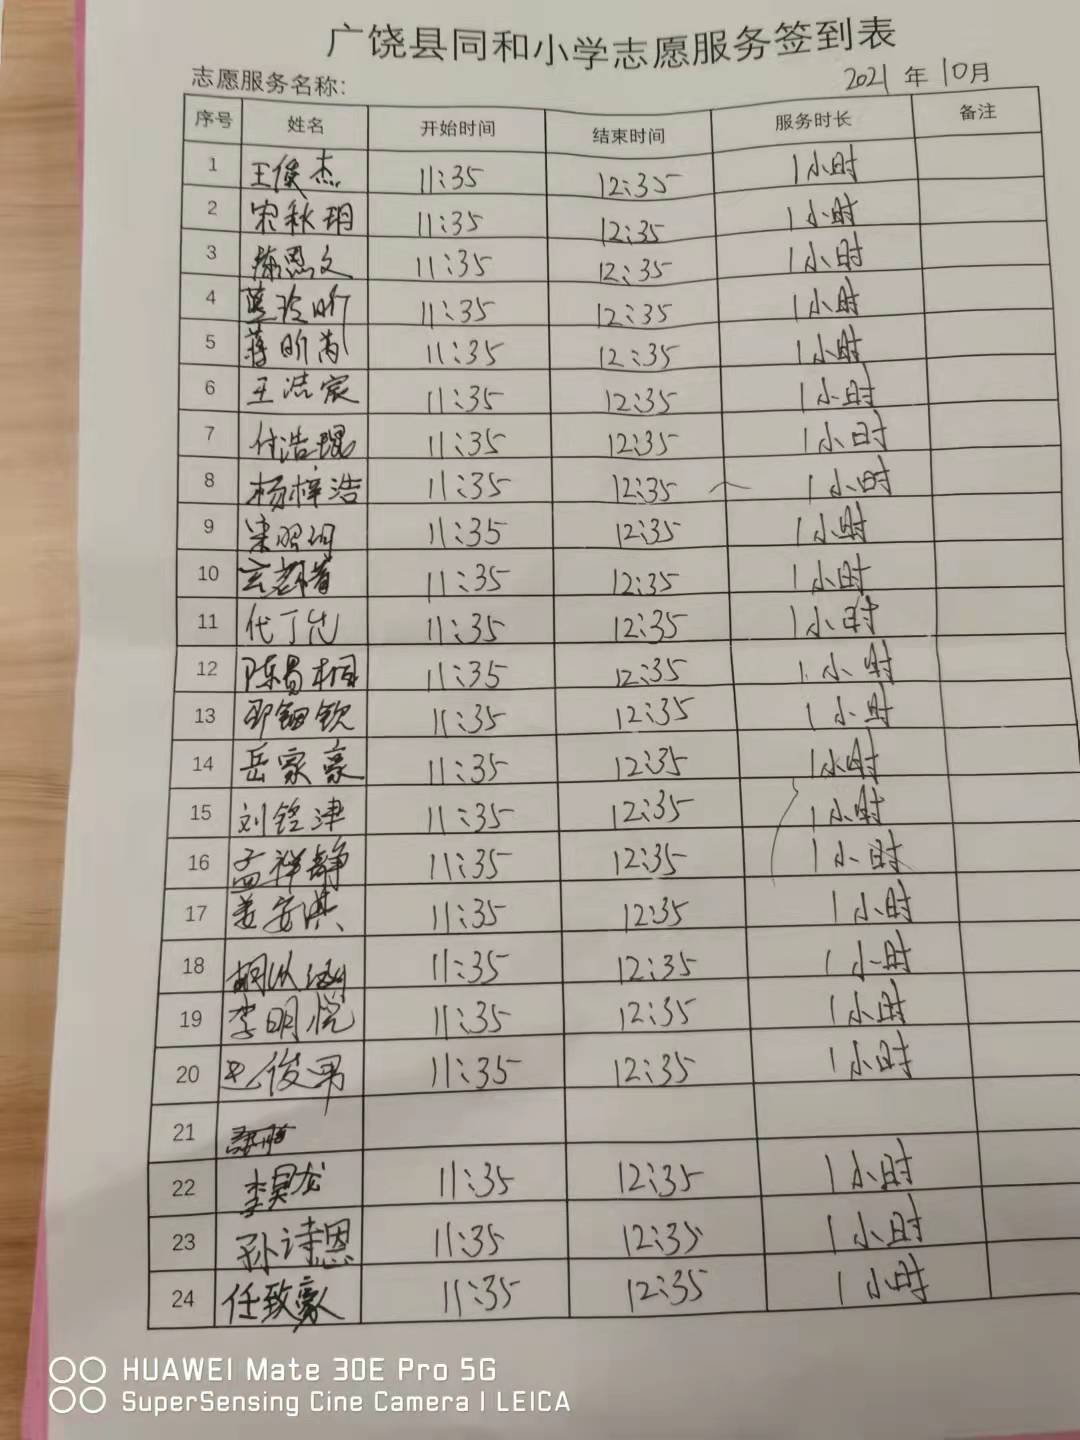 广饶县同和小学志愿服务签到表
志愿服务名称: 2021 年 10月
序号 姓名 开始时间 结束时间 服务时长 备注
1 王俊杰 11:35 12:35 1小时
2 宋秋玥 11:35 12:35 1小时
3 陈恩文 11:35 12:35 1小时
4 11:35 12:35 1小时
5 蒋昕芮 11:35 12:35 1小时
6 王浩宸 11:35 12:35 1小时
7 付浩琨 11:35 12:35 1小时
8 杨梓浩 11:35 12:35 1小时
9 11:35 12:35 1小时
10 11:35 12:35 1小时
11 11:35 12:35 1小时
12 陈昺桐 11:35 12:35 1小时
13 11:35 12:35 1小时
14 岳家豪 11:35 12:35 1小时
15 刘铨津 11:35 12:35 1小时
16 孟祥静 11:35 12:35 1小时
17 姜安淇 11:35 12:35 1小时
18 11:35 12:35 1小时
19 李明悦 11:35 12:35 1小时
20 俊男 11:35 12:35 1小时
21
22 李昊龙 11:35 12:35 1小时
23 孙诗恩 11:35 12:35 1小时
24 任致豪 11:35 12:35 1小时
HUAWEI Mate 30E Pro 5G
SuperSensing Cine Camera | LEICA